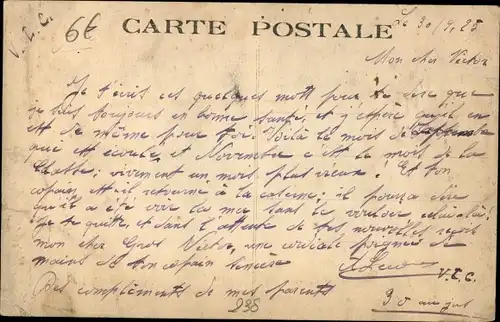 V.I.C.
6€
CARTE POSTALE
Le 30/9.25
Mon cher Victor
Je t'écris ces quelques mots pour te dire que
je suis toujours en bonne santé, et j'espère qu'il en
est de même pour toi. Voilà le mois de Septembre
qui est écoulé, et Novembre c'est le mois de la
classe; vivement un mois plus vieux. Et ton
copain, est-il retourné à la caserne; il pourra dire
qu'il a été voir la mer sans le vouloir celui-là,
Je te quitte, et dans l'attente de tes nouvelles reçois
mon cher Gros Victor, une cordiale poignée de
mains de ton copain sincère
V.I.C.
Des compliments de mes parents
30 au jus
235